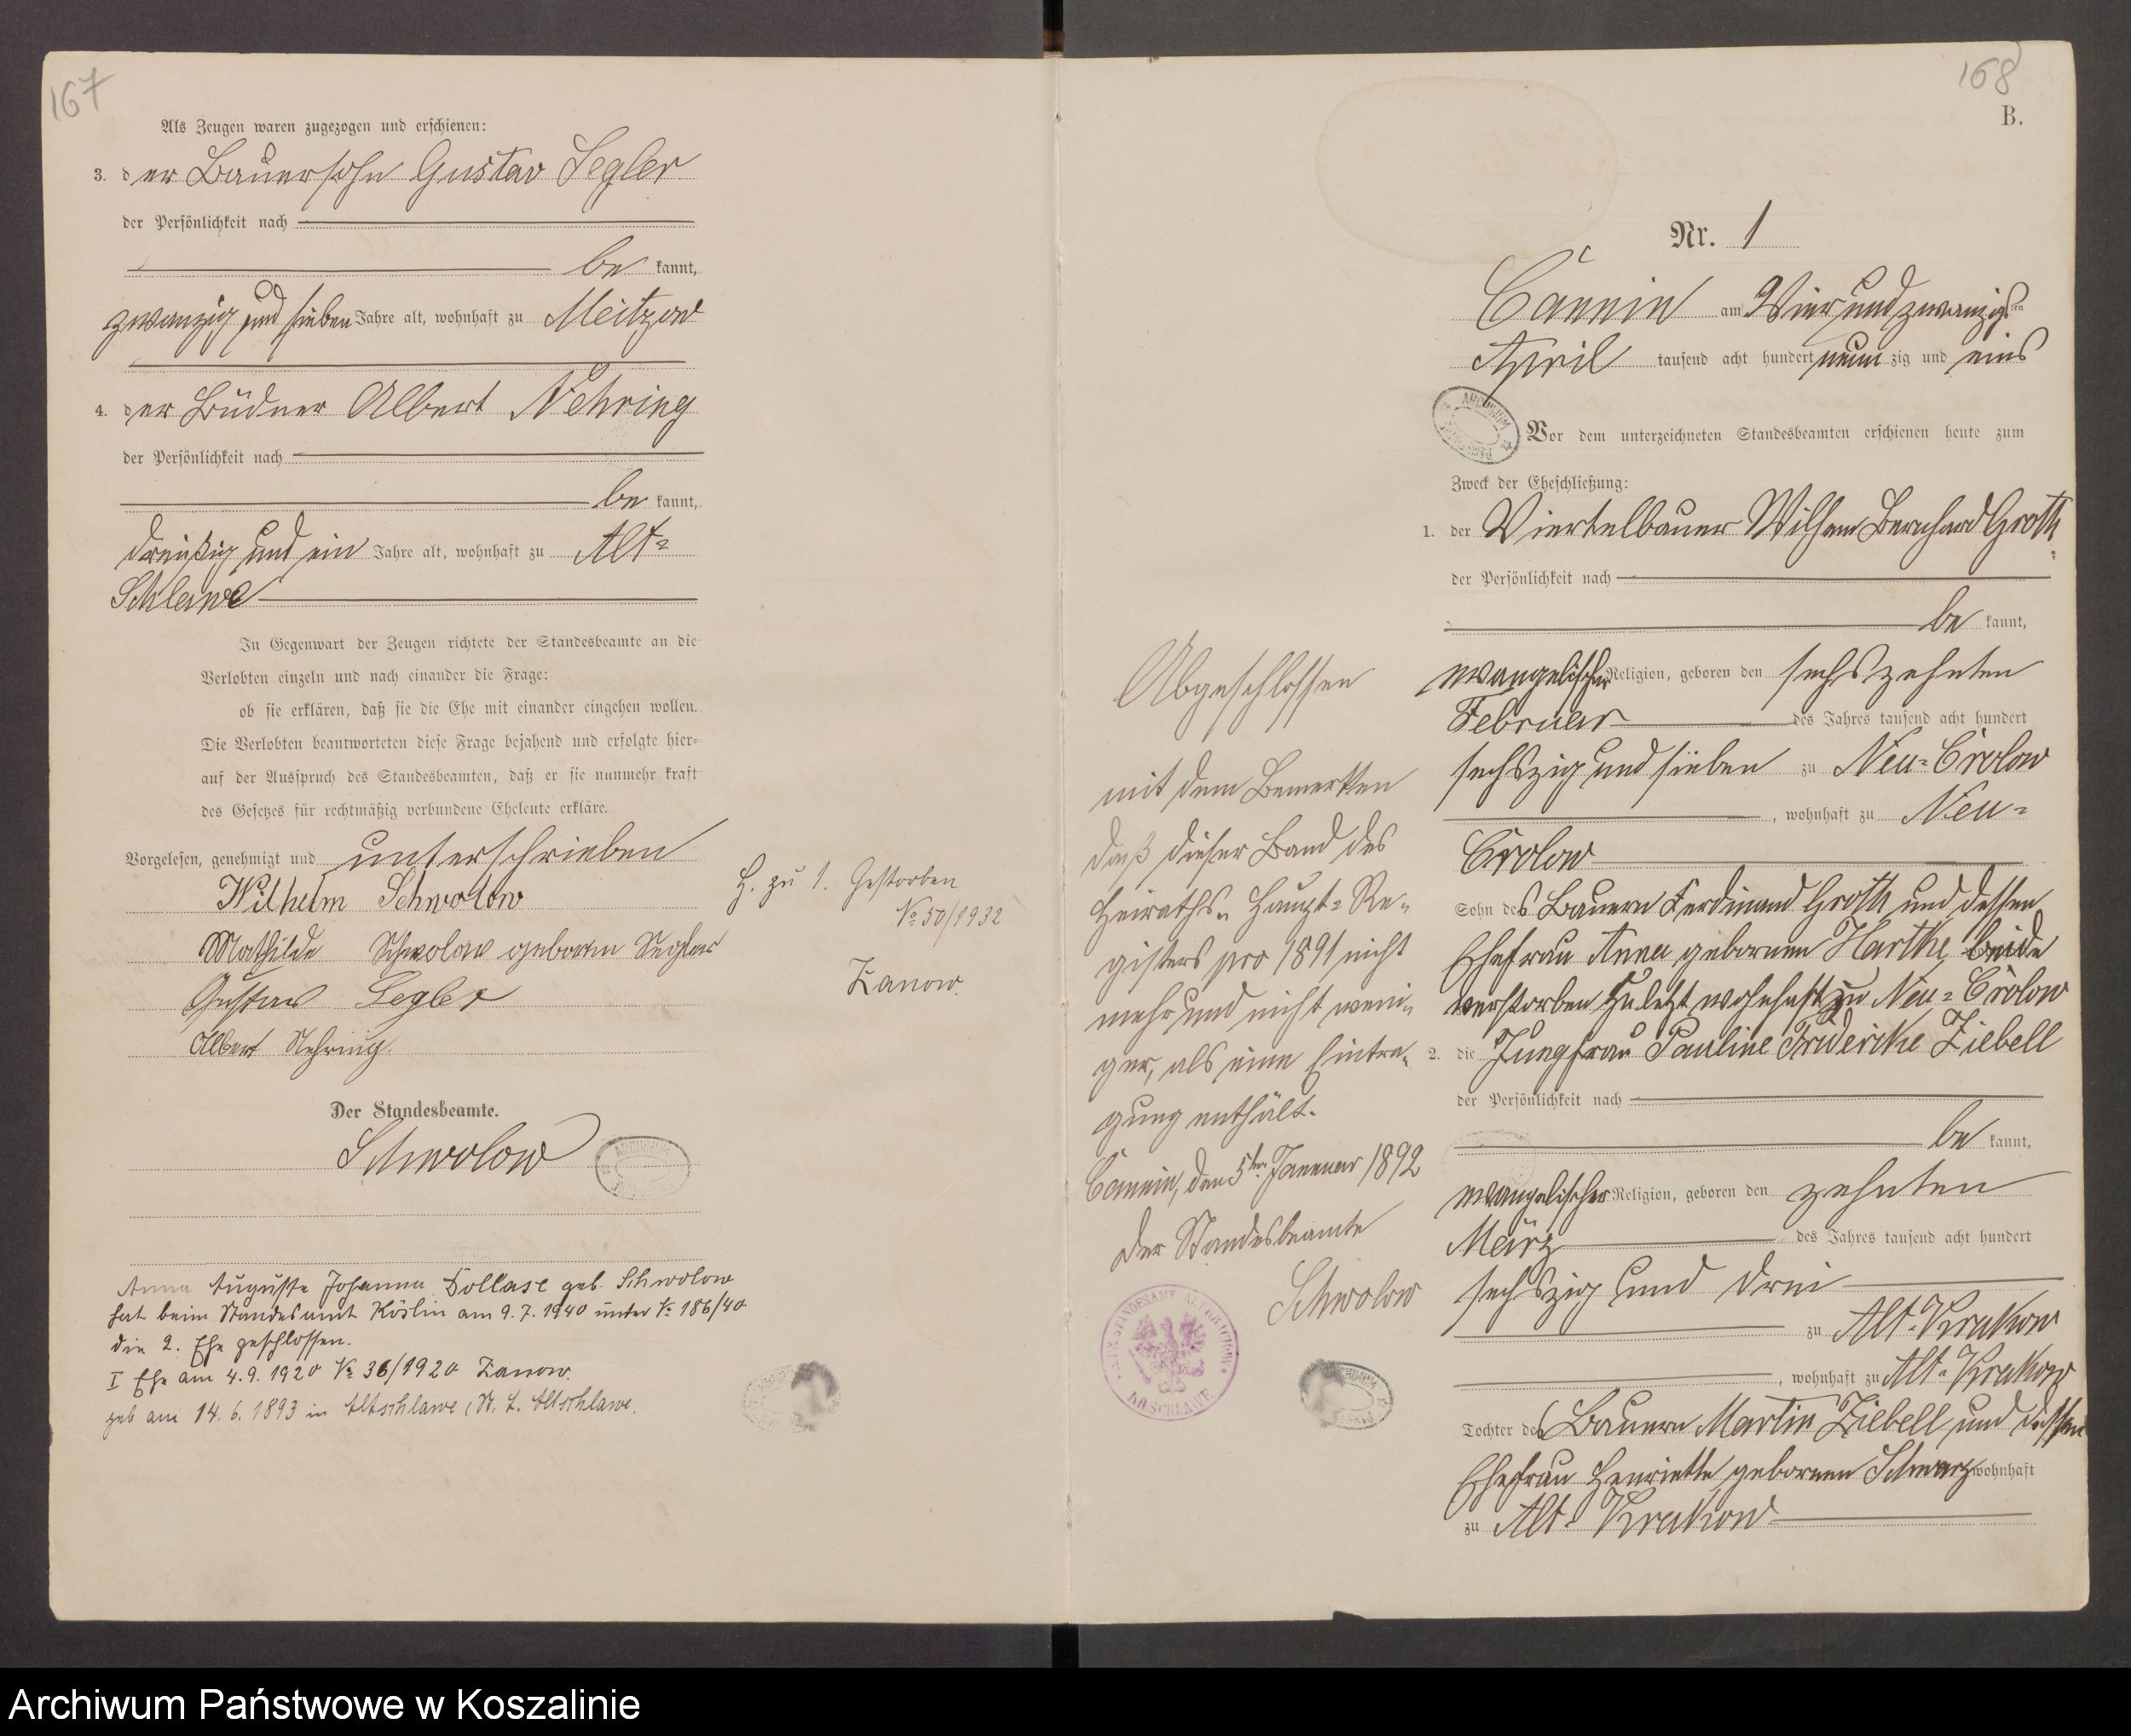 167
Als Zeugen waren zugezogen und erschienen:
3. der Bauersohn Gustav Segler
der Persönlichkeit nach
be kannt,
zwanzig und sieben Jahre alt, wohnhaft zu Meitzow
4. der Büdner Albert Nehring
der Persönlichkeit nach
be kannt,
dreißig und ein Jahre alt, wohnhaft zu Alt-
Schlawe
In Gegenwart der Zeugen richtete der Standesbeamte an die
Verlobten einzeln und nach einander die Frage:
ob sie erklären, daß sie die Ehe mit einander eingehen wollen.
Die Verlobten beantworteten diese Frage bejahend und erfolgte hier-
auf der Ausspruch des Standesbeamten, daß er sie nunmehr kraft
des Gesetzes für rechtmäßig verbundene Eheleute erkläre.
Vorgelesen, genehmigt und unterschrieben
Wilhelm Schwolow
Mathilde Schwolow geboren Segler
Gustav Segler
Albert Nehring.
Der Standesbeamte.
Schwolow
Anna Auguste Johanna Dollase geb. Schwolow
hat beim Standesamt Köslin am 9. 7. 1940 unter № 186/40
die 2. Ehe geschlossen.
I Ehe am 4. 9. 1920 № 36/1920 Zanow.
geb am 14. 6. 1893 in Altschlawe (St. A. Altschlawe.
H. zu 1. Gestorben
№ 50/1932
Zanow.
Abgeschlossen
mit dem Bemerken
daß dieser Band des
Heiraths- Haupt-Re-
gisters pro 1891 nicht
mehr und nicht weni-
ger, als eine Eintra-
gung enthält.
Cannin, den 5ten Januar 1892
Der Standesbeamte
Schwolow
168
B.
Nr. 1
Cannin am Vier und zwanzigsten
April tausend acht hundert neun zig und eins
Vor dem unterzeichneten Standesbeamten erschienen heute zum
Zweck der Eheschließung:
1. der Viertelbauer Wilhem Bernhard Groth
der Persönlichkeit nach
be kannt,
evangelischer Religion, geboren den sechszehnten
Februar des Jahres tausend acht hundert
sechszig und sieben zu Neu-Crolow
, wohnhaft zu Neu-
Crolow
Sohn des Bauern Ferdinand Groth und dessen
Ehefrau Anna gebornen Harthe, beide
verstorben zuletzt wohnhaft zu Neu-Crolow
2. die Jungfrau Pauline Friderike Ziebell
der Persönlichkeit nach
be kannt,
evangelischer Religion, geboren den zehnten
März des Jahres tausend acht hundert
sechszig und drei
zu Alt-Krakow
, wohnhaft zu Alt-Krakow
Tochter des Bauern Martin Ziebell und dessen
Ehefrau Henriette gebornen Schwarz wohnhaft
zu Alt-Krakow
Archiwum Państwowe w Koszalinie